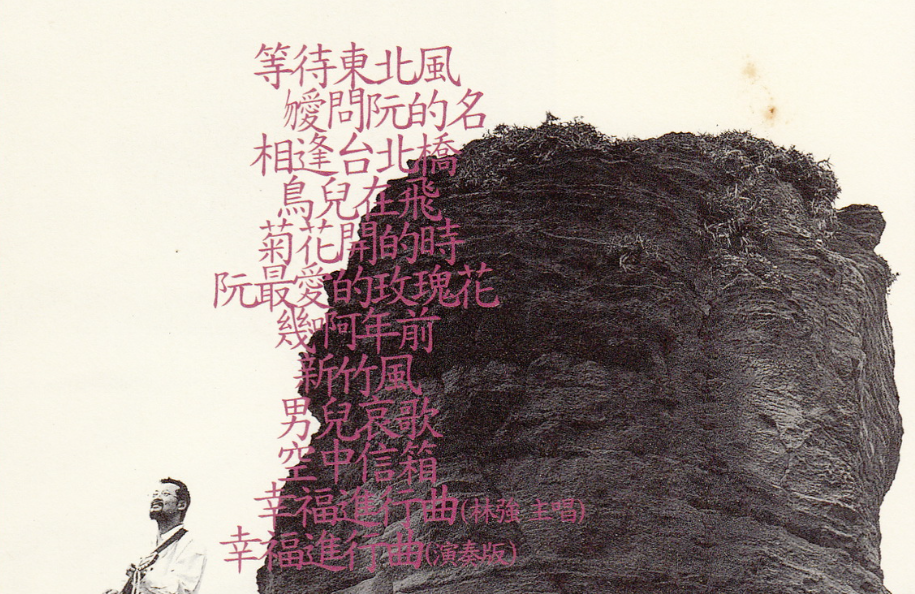 等待東北風
嬡問阮的名
相逢台北橋
鳥兒在飛
菊花開的時
阮最愛的玫瑰花
幾啊年前
新竹風
男兒哀歌
空中信箱
幸福進行曲(林強 主唱)
幸福進行曲(演奏版)